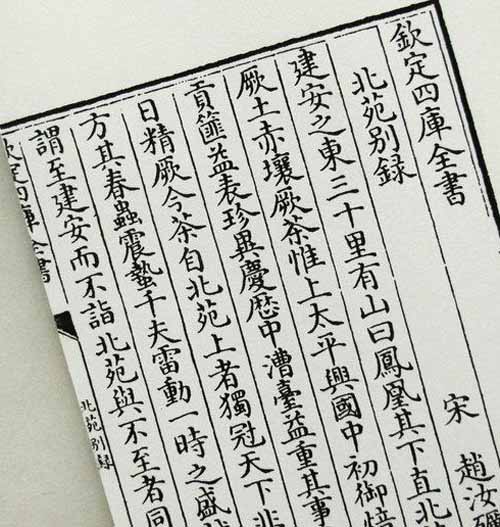 欽定四庫全書
北苑别録
宋 趙汝礪
建安之東三十里有山曰鳳凰其下直北
厥土赤壤厥茶惟上太平興國中初御焙
貢篚益表珍異慶歴中漕臺益重其事
日精厥今茶自北苑上者獨冠天下非
方其春蟲震蟄千夫雷動一時之盛
謂至建安而不詣北苑與不至者同
欽定四庫全書
北苑别録